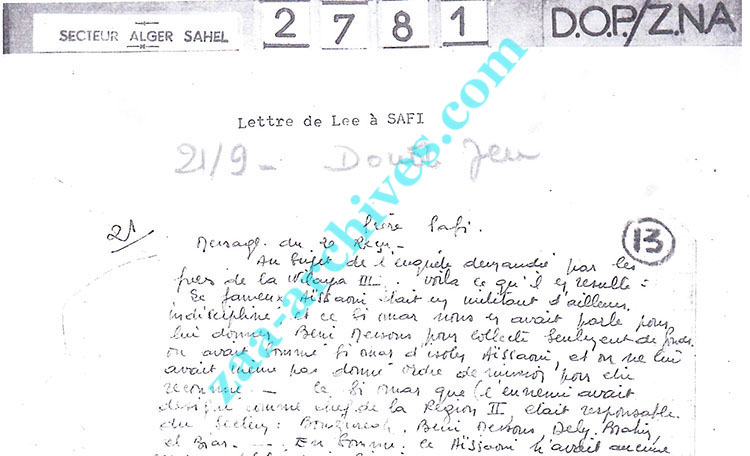 SECTEUR ALGER SAHEL
2 7 8 1
D.O.P./Z.NA
Lettre de Lee à SAFI
21/9 - Double Jeu
21/
frère Safi.
13
Message du 20 Reçu -
Au Sujet de l'enquete demandée par les
frères de la Wilaya III. Voila ce qu'il en resulte:
Ce fameux Aïssaoui était un militant d'ailleurs
indiscipliné et ce Si Omar nous en avait parlé pour
lui donner Beni Messous pour collecte Seulement de fonds.
on avait Sommé Si Omar d'isoler Aïssaoui, et on ne lui
avait même pas donné ordre de mission pour être
reconnu - Ce Si Omar que l'ennemi avait
designé comme chef de la Region II, etait responsable
du Secteur: Bouzareah, Beni Messous Dely Brahim
et Biar. - En Somme ce Aïssaoui n'avait aucune
zaa-archives.com